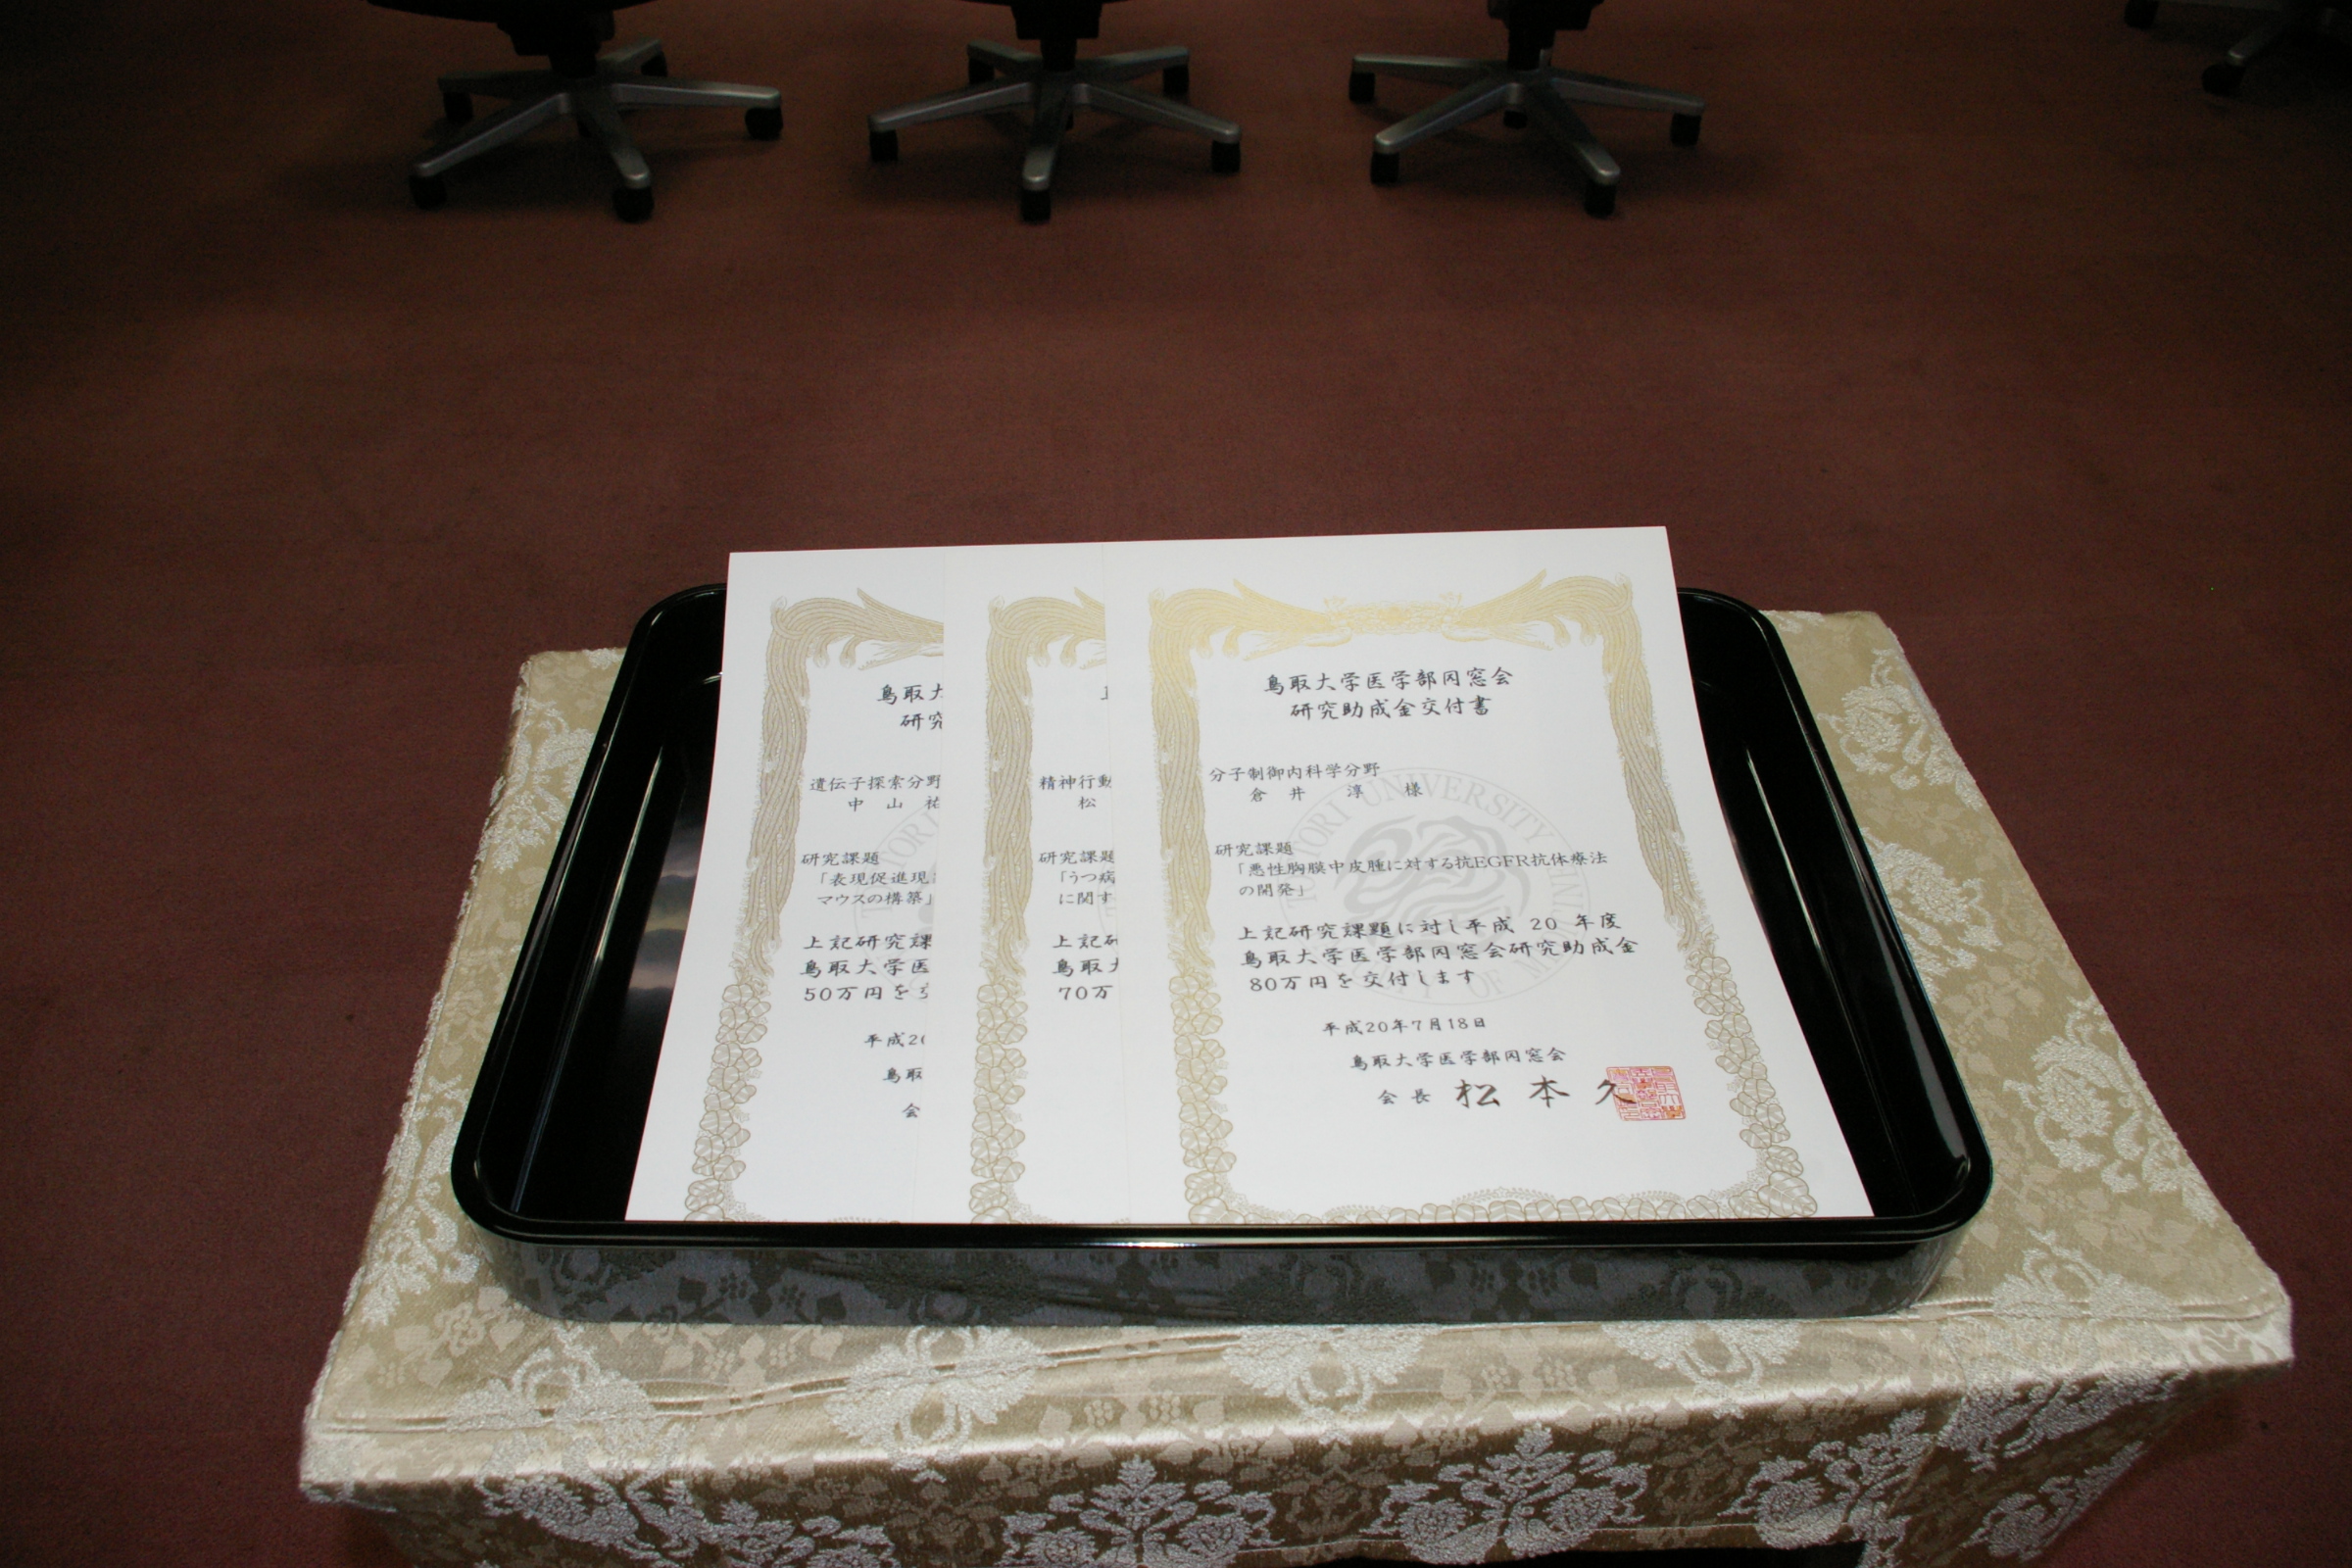 鳥取大
研究
遺伝子探索分野
中 山 祐
研究課題
「表現促進現
マウスの構築」
上記研究課
鳥取大学医
50万円を交
平成20
鳥取
会
精神行動
松
研究課題
「うつ病
に関す
上記研
鳥取大
70万
鳥取大学医学部同窓会
研究助成金交付書
分子制御内科学分野
倉 井 淳 様
研究課題
「悪性胸膜中皮腫に対する抗EGFR抗体療法
の開発」
上記研究課題に対し平成 20 年度
鳥取大学医学部同窓会研究助成金
80万円を交付します
平成20年7月18日
鳥取大学医学部同窓会
会長 松本久
TOTTORI UNIVERSITY